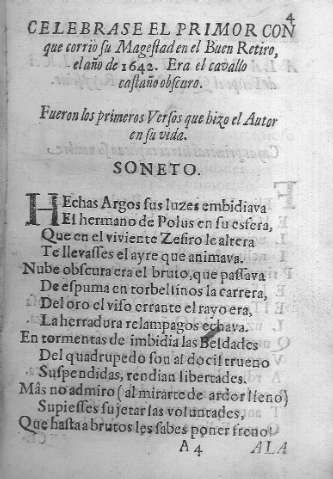 4
CELEBRASE EL PRIMOR CON
que corriò su Magestad en el Buen Retiro,
el año de 1642. Era el cavallo
castaño obscuro.
Fueron los primeros Versos que hizo el Autor
en su vida.
SONETO.
HEchas Argos sus luzes embidiava
El hermano de Polus en su esfera,
Que en el viviente Zefiro le altera
Te llevasses el ayre que animava.
Nube obscura era el bruto, que passava
De espuma en torbellinos la carrera,
Del oro el viso errante el rayo era,
La herradura relampagos echava.
En tormentas de imbidia las Beldades
Del quadrupedo son al docil trueno
Suspendidas, rendian libertades.
Màs no admiro (al mirarte de ardor lleno)
Supiesses sujetar las voluntades,
Que hasta a brutos les sabes poner freno!
A 4 ALA